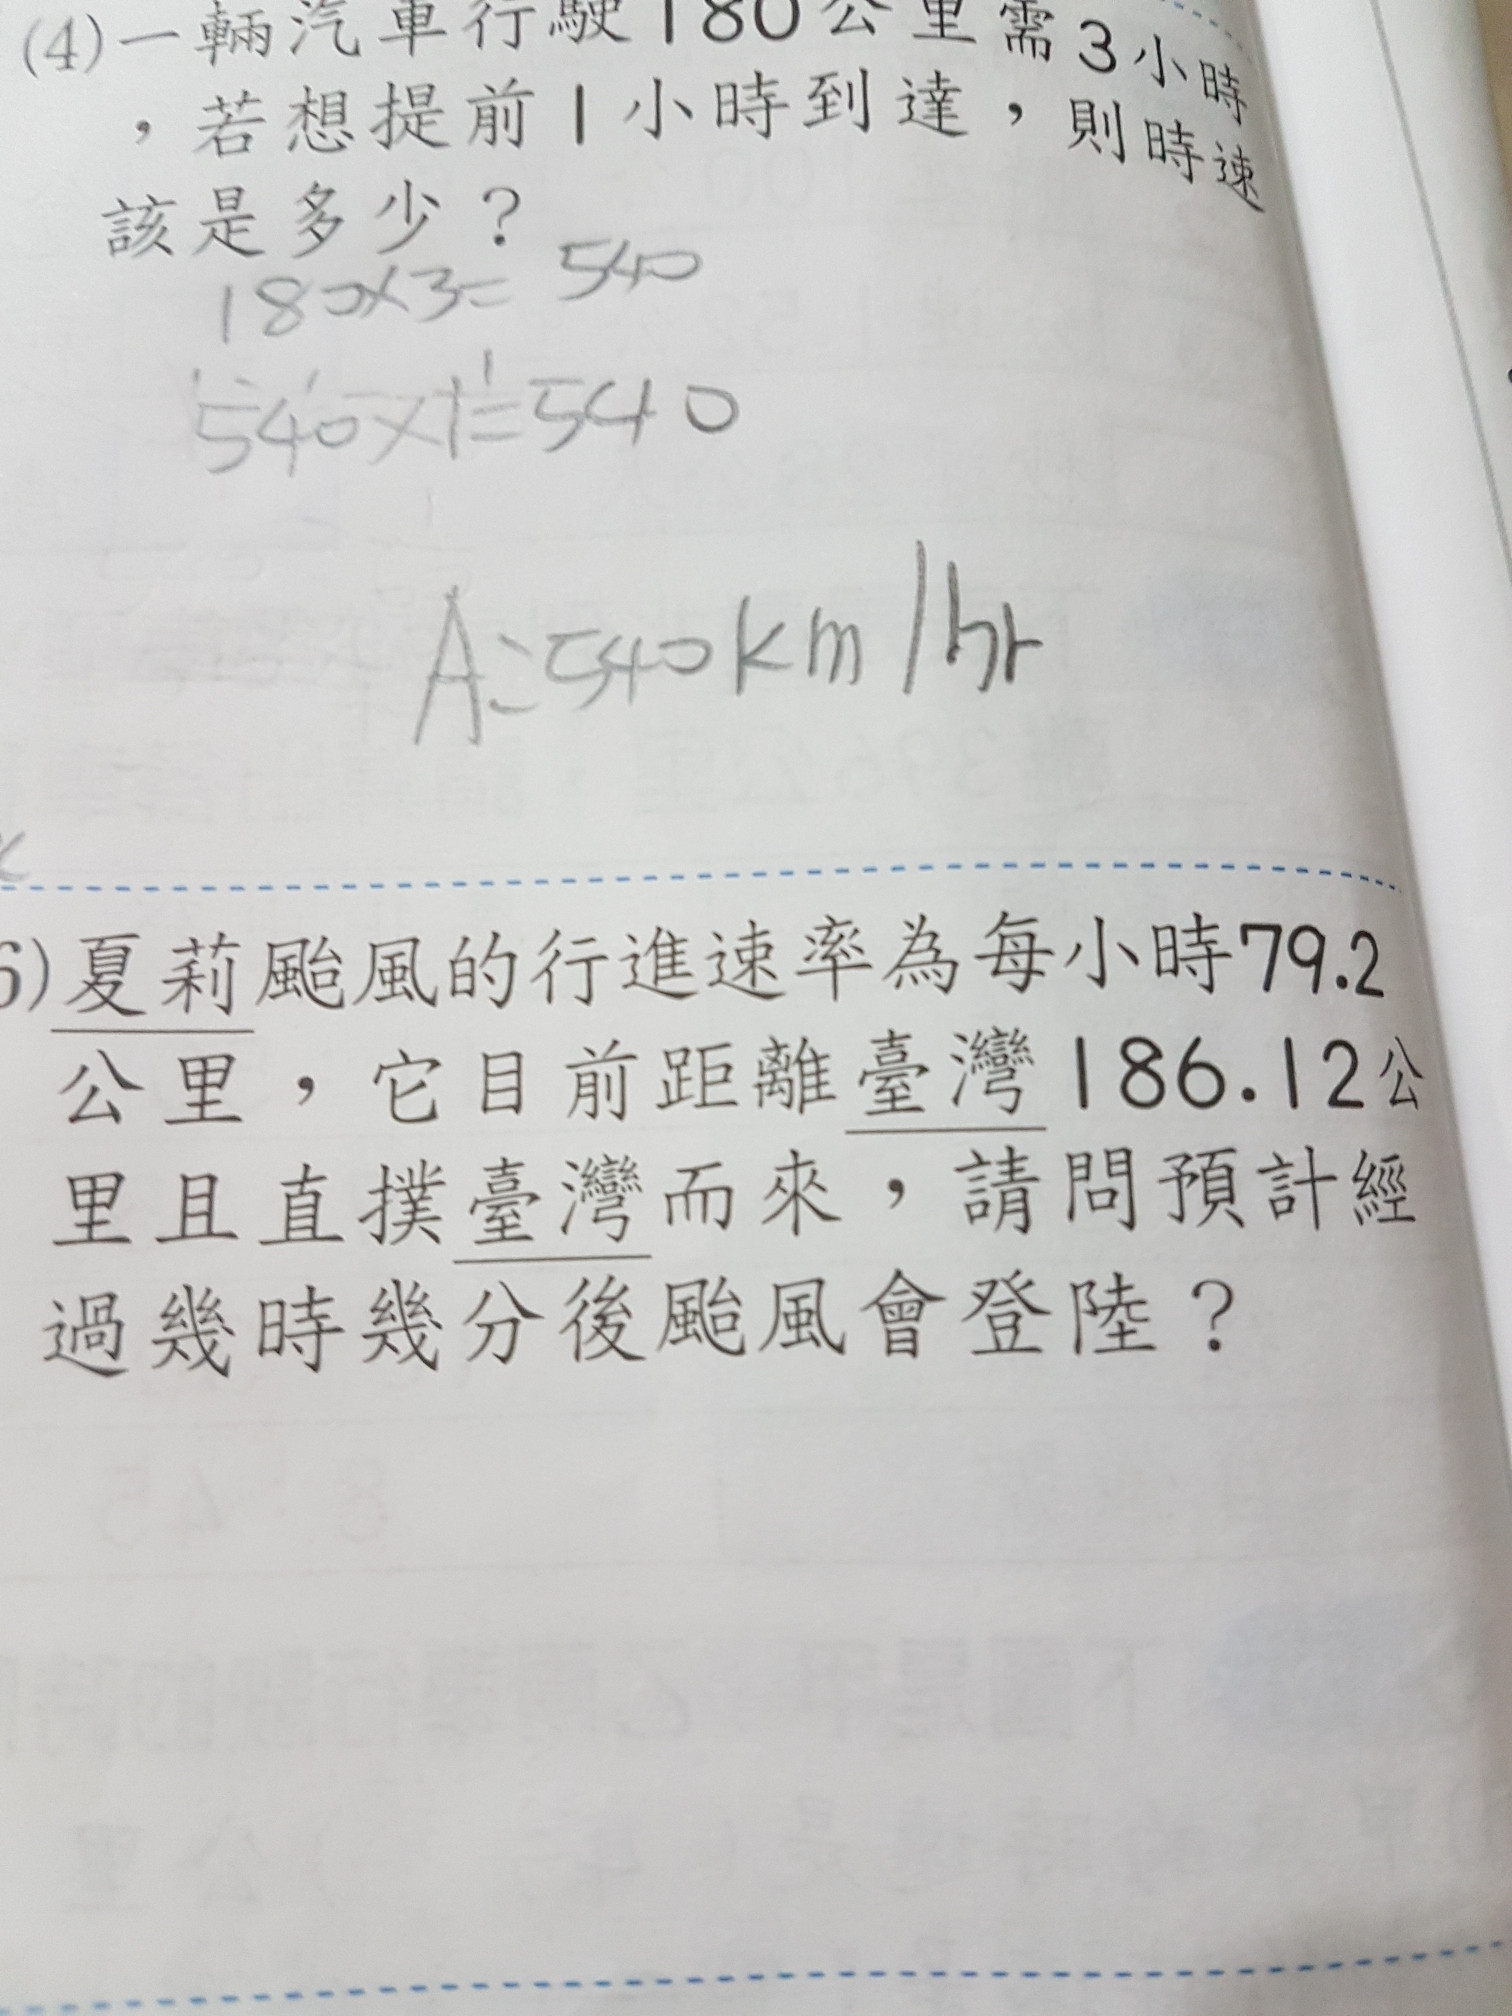 (4)一輛汽車行駛180公里需3小時
，若想提前1小時到達，則時速
該是多少？
180×3=540
540×1=540
A:540km/hr
6)夏莉颱風的行進速率為每小時79.2
公里，它目前距離臺灣186.12公
里且直撲臺灣而來，請問預計經
過幾時幾分後颱風會登陸？